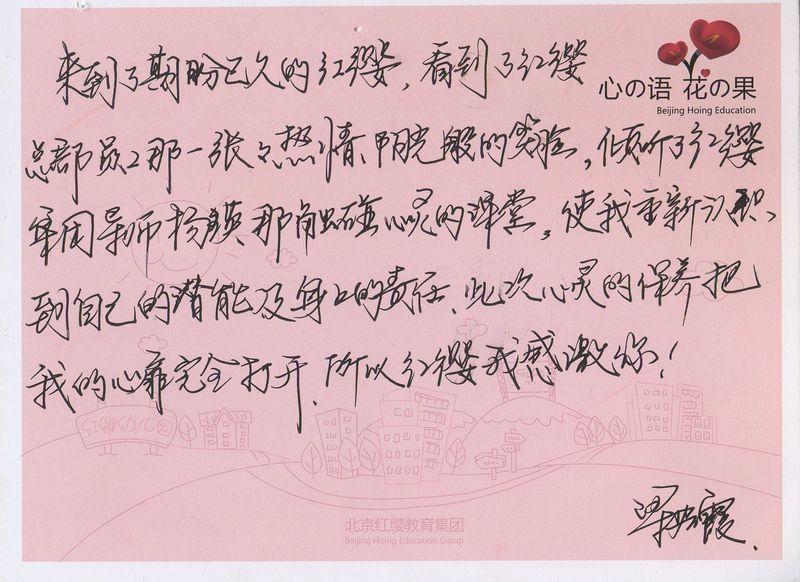 心の语 花の果
Beijing Hoing Education
来到了期盼已久的红缨，看到了红缨
总部员工那一张张热情、阳光般的笑脸，倾听了红缨
军团导师杨瑛那触碰心灵的课堂，使我重新认识
到自己的潜能及身上的责任、此次心灵的保养把
我的心扉完全打开、所以红缨我感激你！
红缨幼儿园
北京红缨教育集团
Beijing Hoing Education Group
梁艳霞